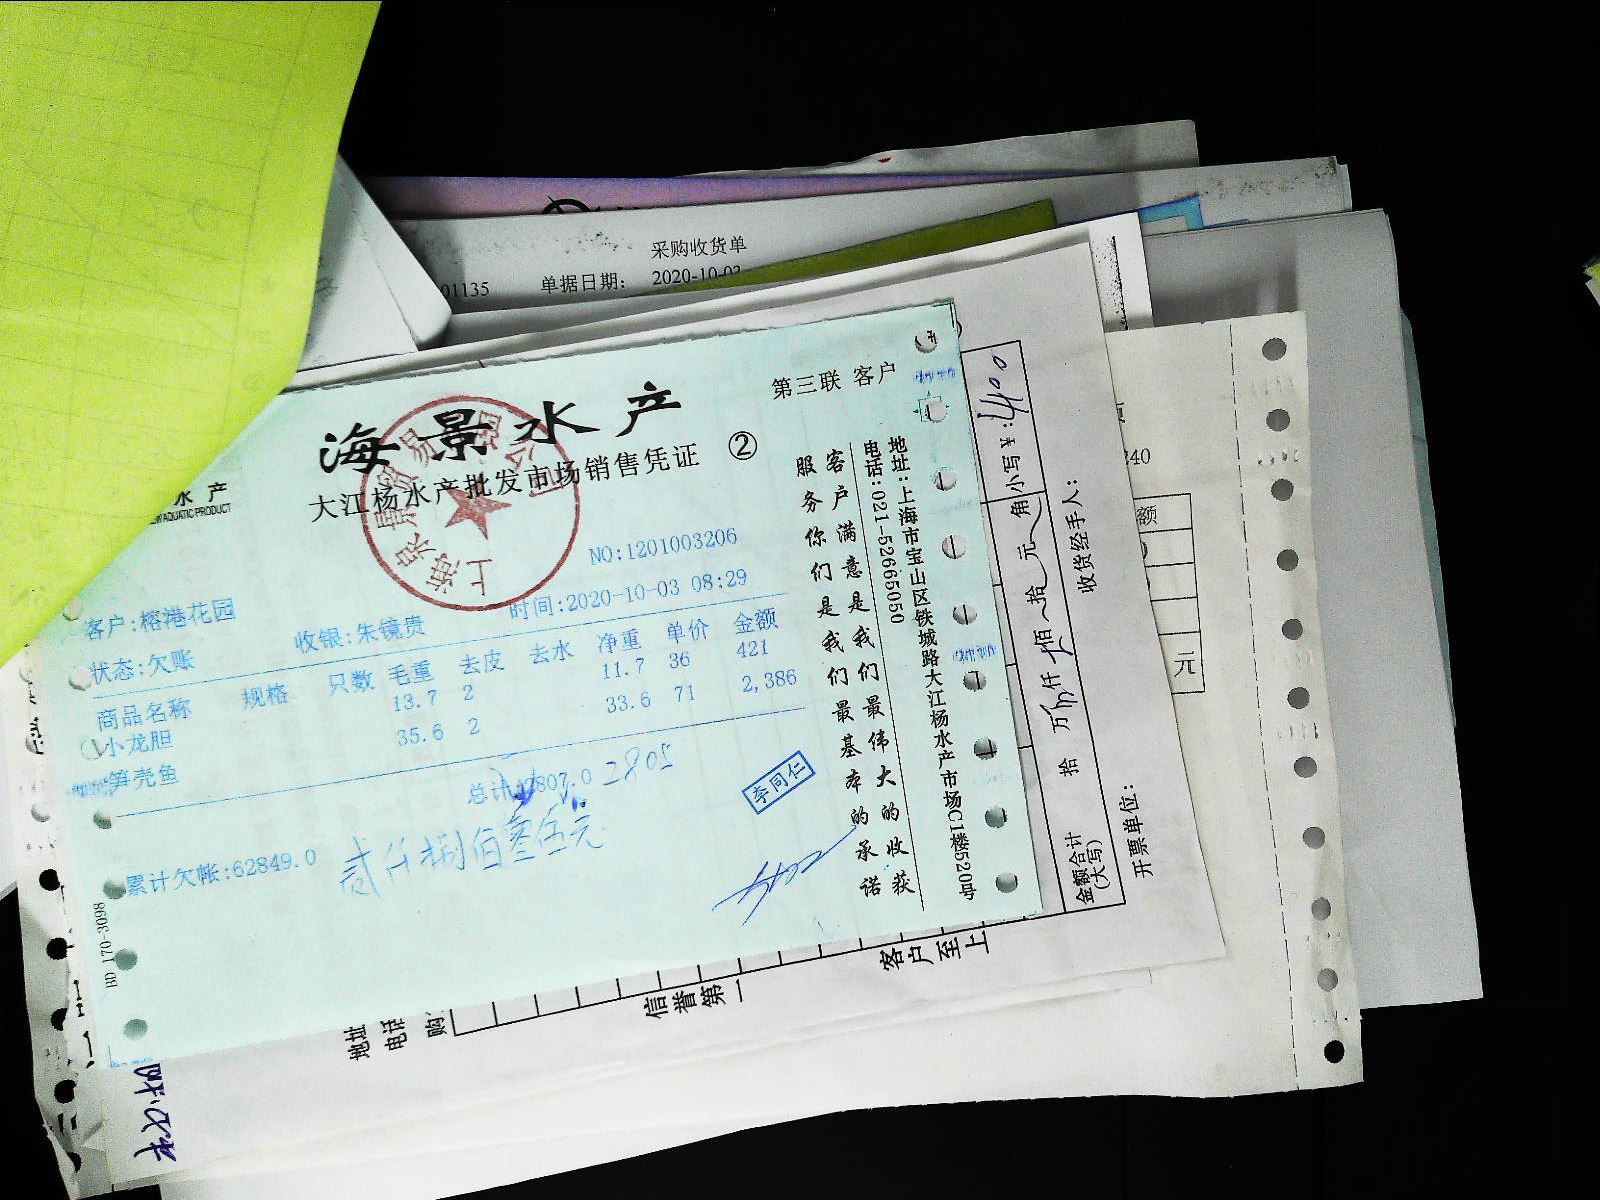 采购收货单
01135 单据日期: 2020-10-03
海景水产
第三联 客户
大江杨水产批发市场销售凭证 ②
水产
AQUATIC PRODUCT
NO:1201003206
客户:榕港花园 收银:朱镜贵 时间:2020-10-03 08:29
状态:欠账
商品名称 规格 只数 毛重 去皮 去水 净重 单价 金额
小龙胆 13.7 2 11.7 36 421
笋壳鱼 35.6 2 33.6 71 2,386
总计:2807.0 2805
李同仁
累计欠帐:62849.0
贰仟捌佰零伍元
BD 170-3098
客户满意是我们最伟大的收获
服务你们是我们最基本的承诺
电话:021-52665050
地址:上海市宝山区铁城路大江杨水产市场C1楼520号
金额合计(大写) 拾 万 仟 佰 拾 元 角 小写¥:1400
开票单位: 收货经手人:
客户至上
信誉第一
地址
电话
购
340
额
元